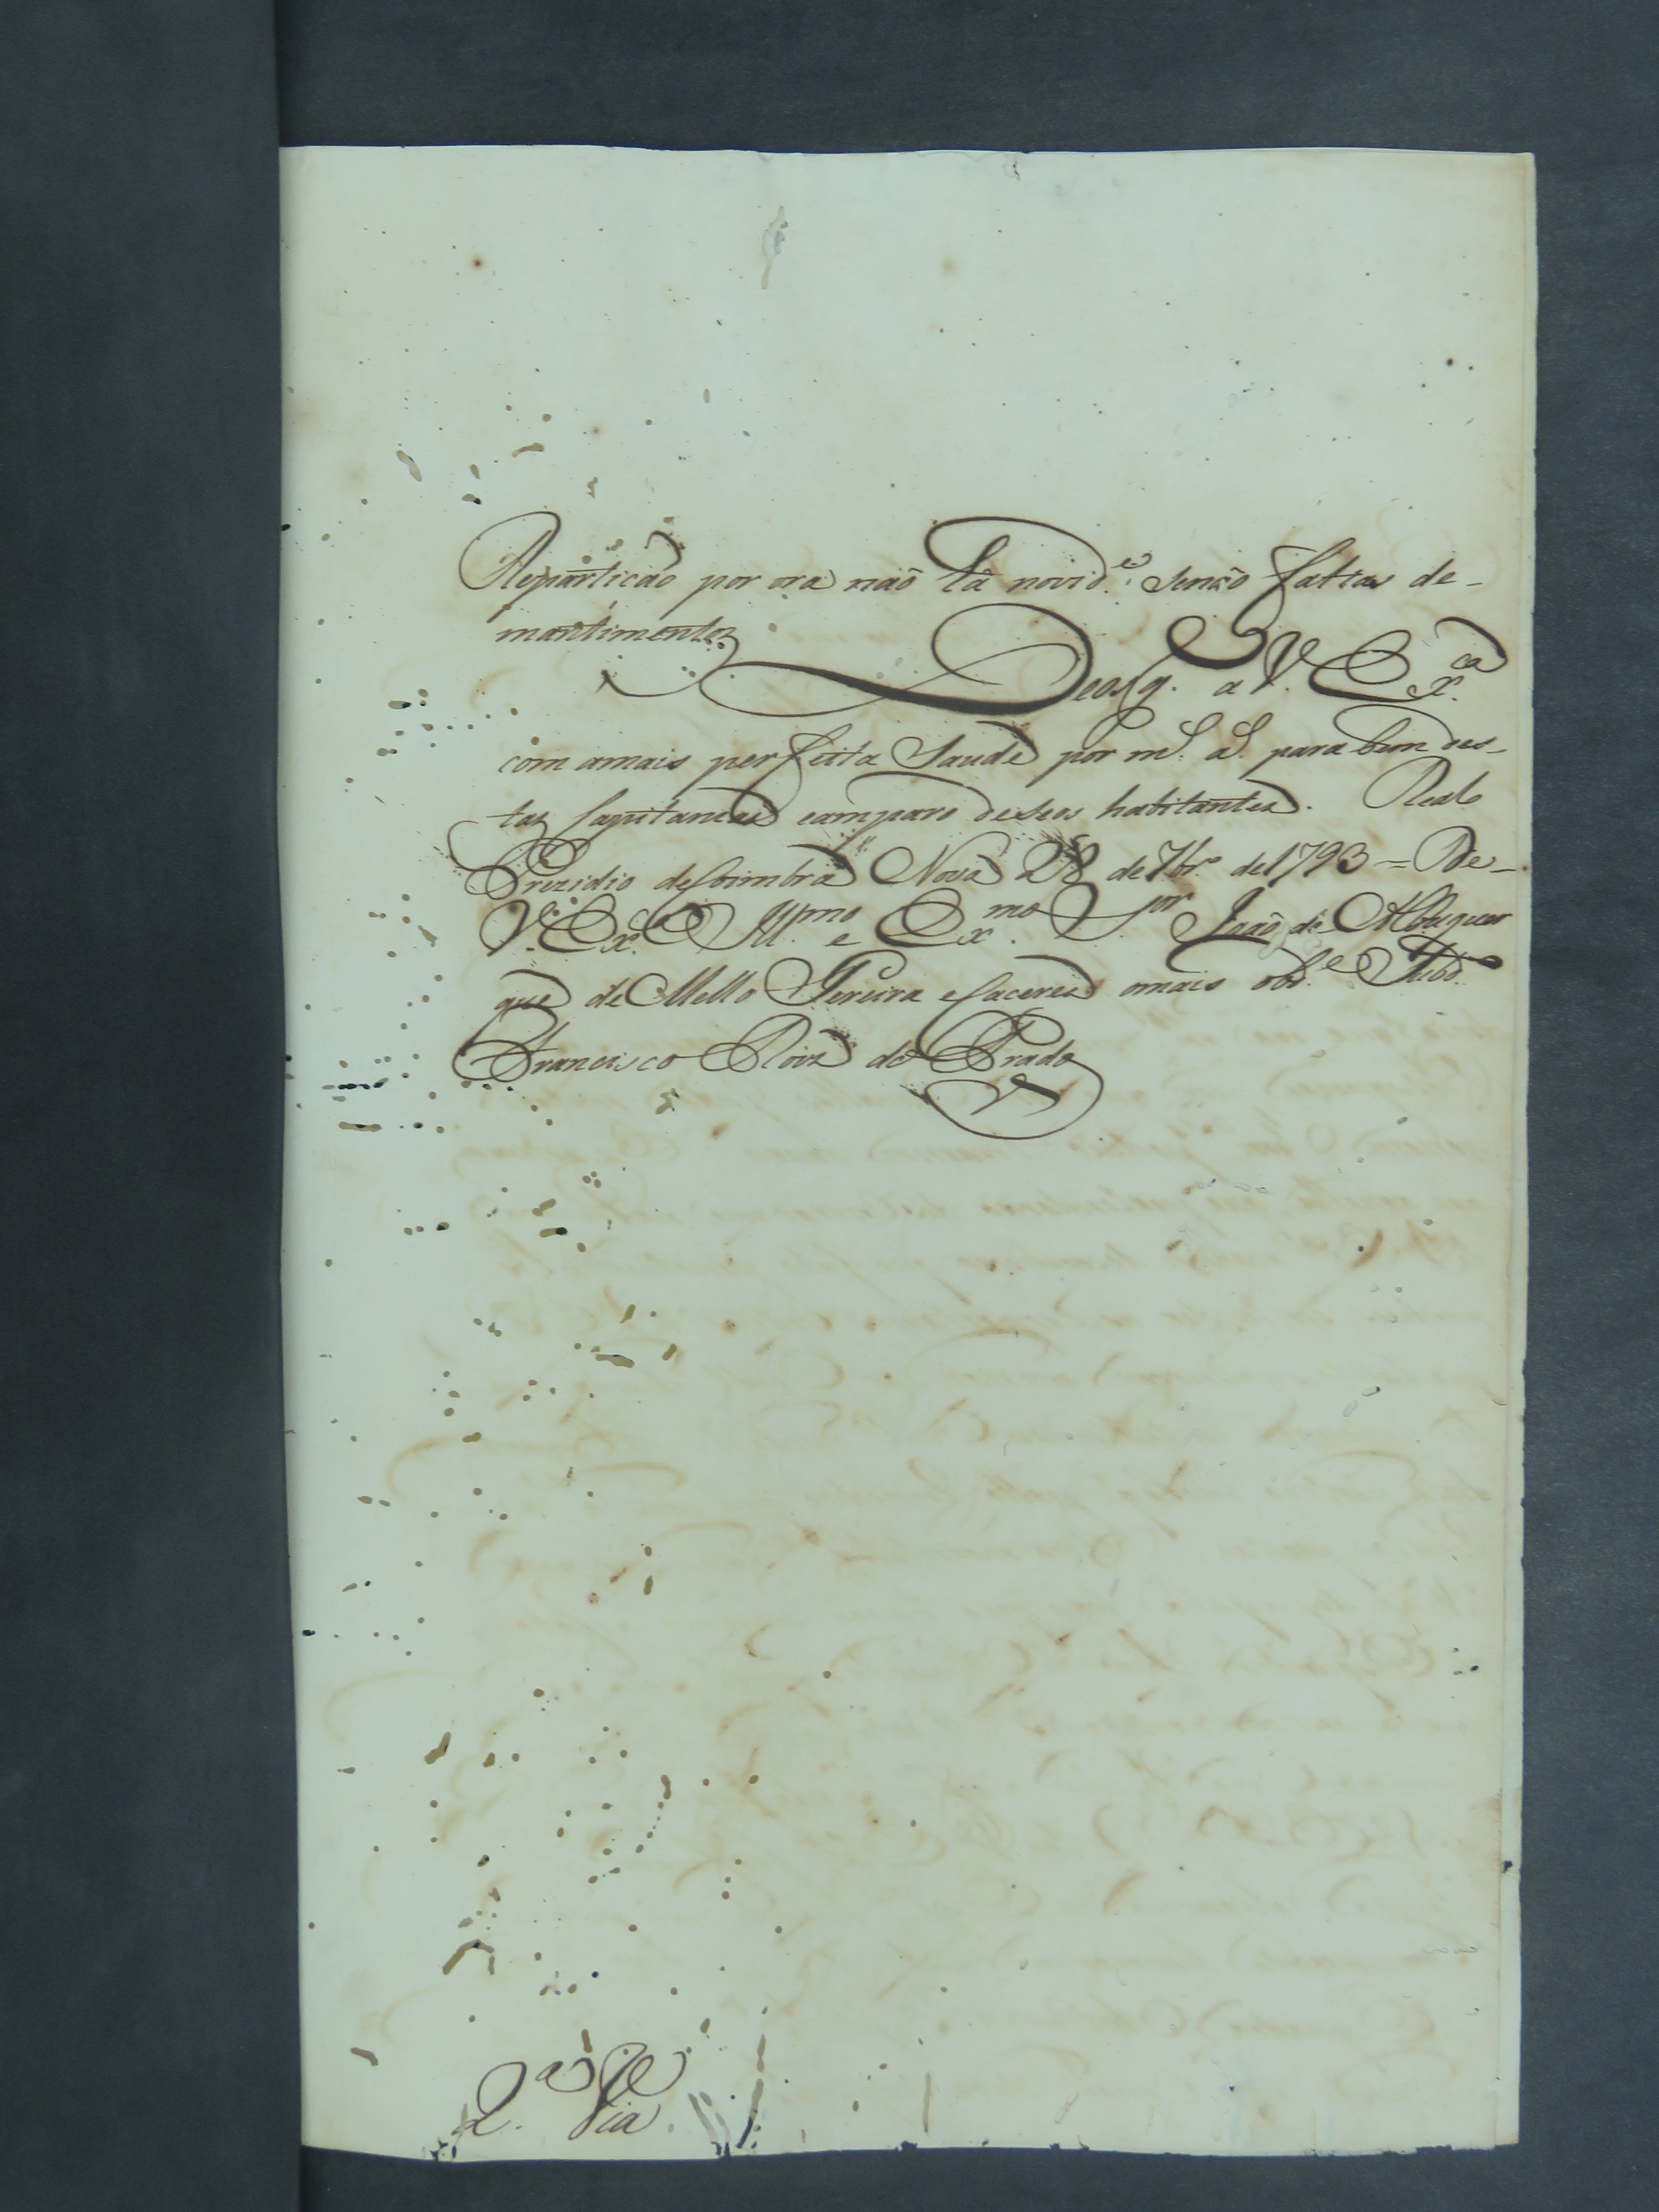 Repartição por ora não há novid.e senão faltas de-
mantimentos
Deos g. a V. Ex.ca
com amais perfeita Saude por m.s a.s para bem des-
tas Capitanias eamparo deseos habitantes. Real
Prezidio deCoimbra Nova 28 de 7br.o de1793 = De-
V. Ex.ca Ill.mo e Ex.mo S.or João de Albuquer
que de Mello Pereira eCaceres omais ob.e Subd.
Francisco Roiz do Prado
2.a Via